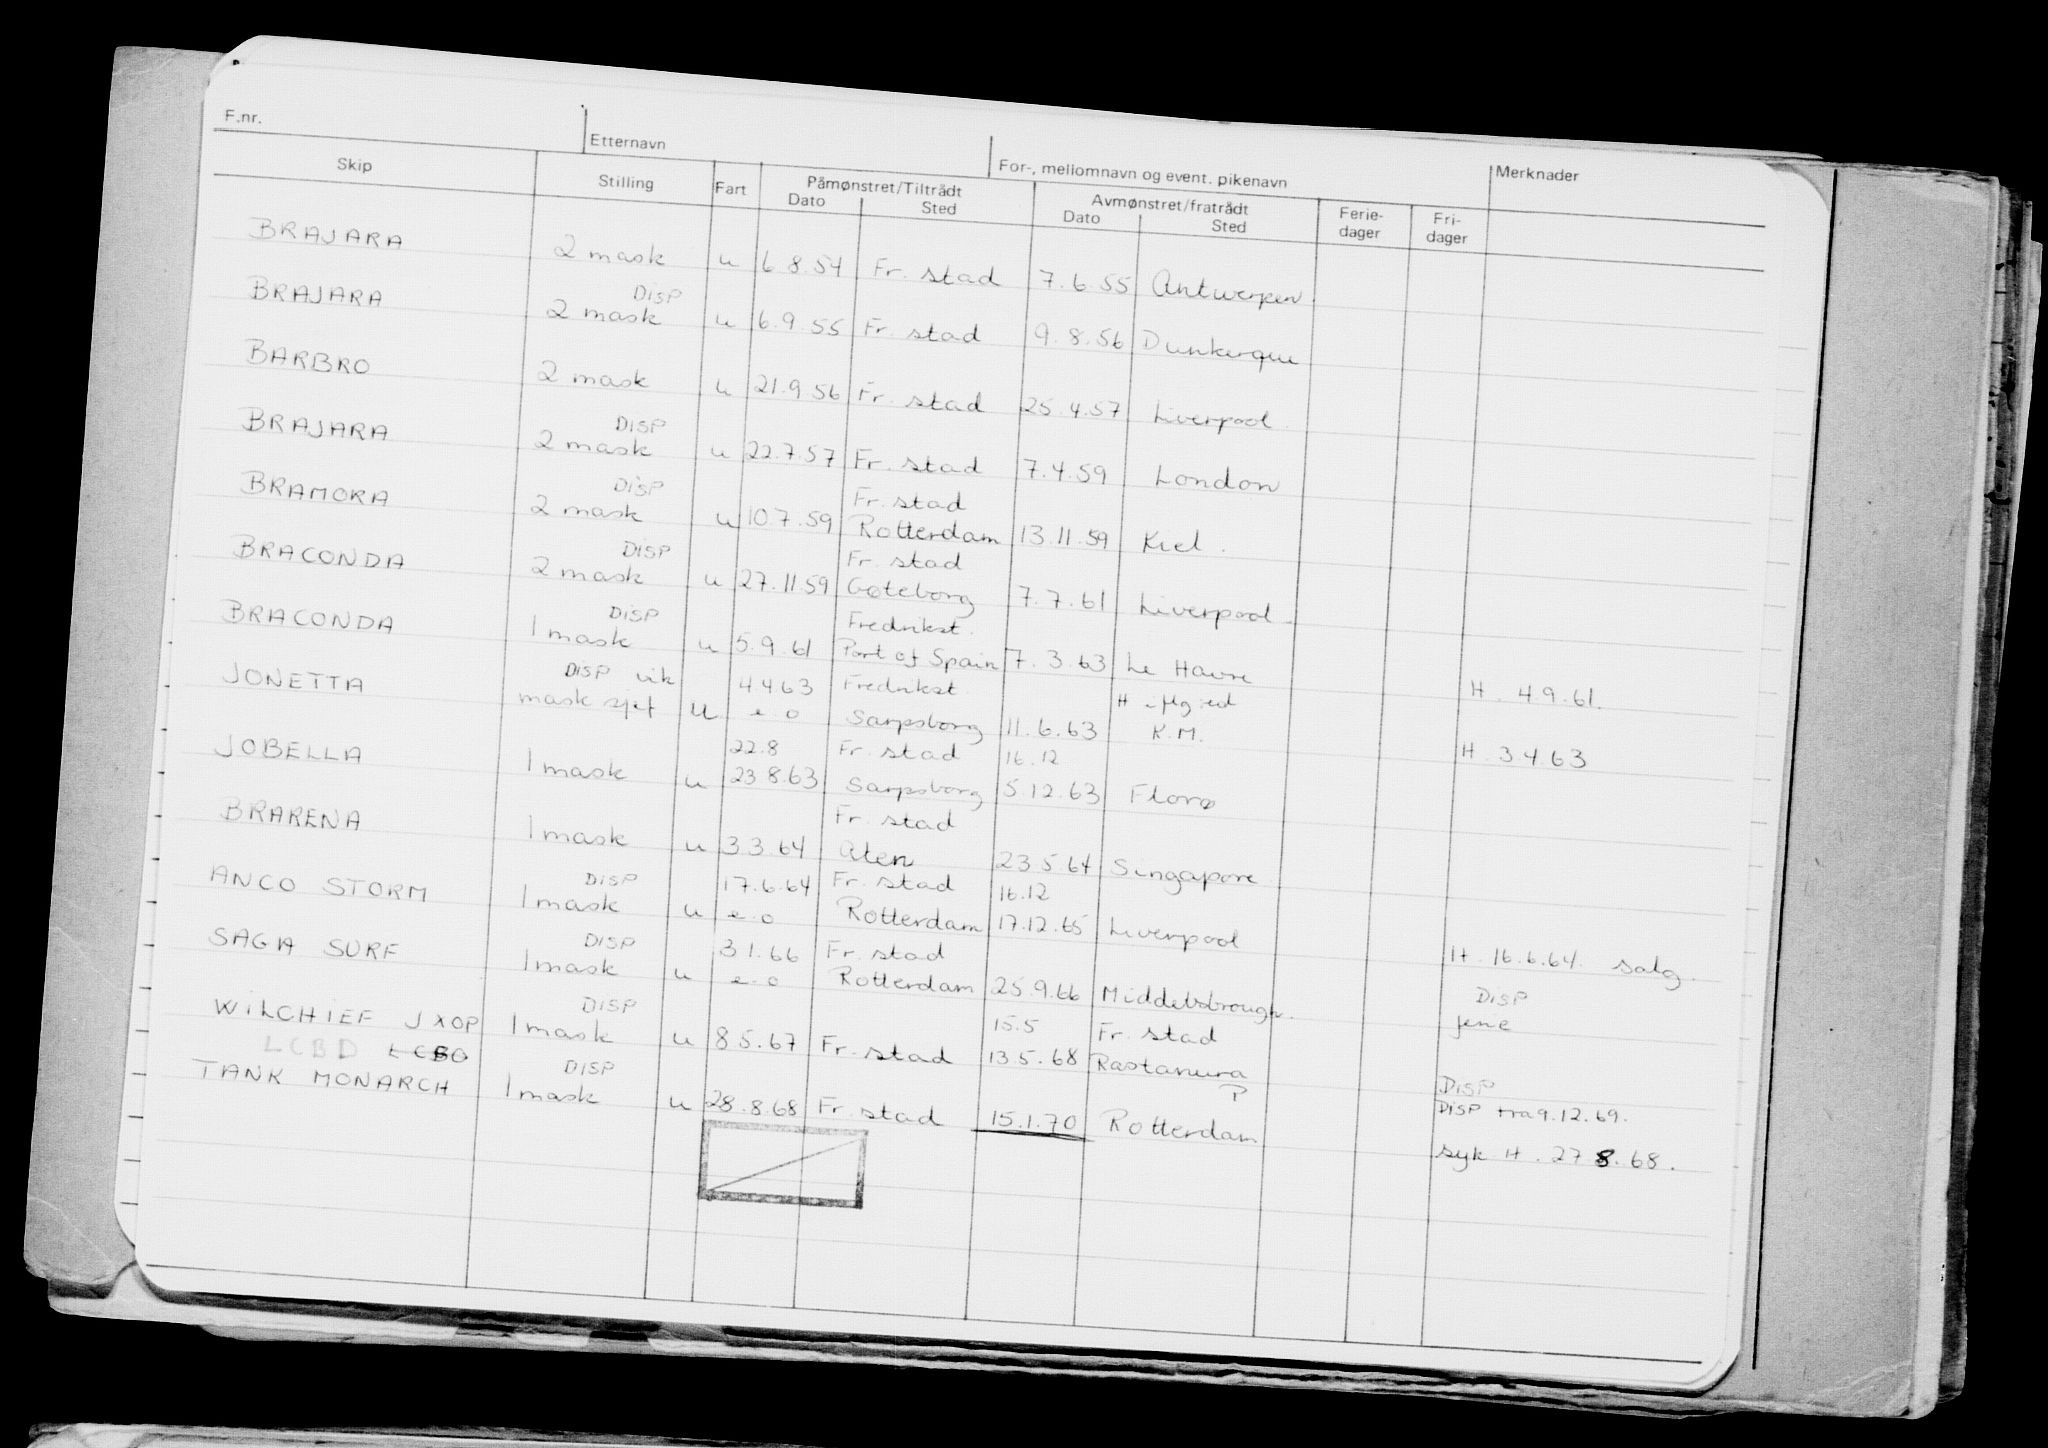 F.nr. Etternavn For-, mellomnavn og event. pikenavn Merknader
Skip Stilling Fart Påmønstret/Tiltrådt Avmønstret/fratrådt Ferie- Fri-
Dato Sted Dato Sted dager dager
BRAJARA 2 mask u 6 8.54 Fr. stad 7.6.55 Antwerpen
DISP
BRAJARA 2 mask u 6.9.55 Fr. stad 9.8.56 Dunkerque
BARBRO 2 mask u 21.9.56 Fr. stad 25.4.57 Liverpool
DISP
BRAJARA 2 mask u 22.7.57 Fr. stad 7.4.59 London
DISP Fr. stad
BRAMORA 2 mask u 10.7.59 Rotterdam 13.11.59 Kiel.
DISP Fr. stad
BRACONDA 2 mask u 27.11.59 Gøteborg 7.7.61 Liverpool
DISP Fredrikst.
BRACONDA 1 mask u 5.9.61 Port of Spain 7.3.63 Le Havre H. 4.9.61.
DISP vik 4 4 63 Fredrikst. H
JONETTA mask sjef u e.o Sarpsborg 11.6.63 K.M. H. 3 4 63
22.8 Fr. stad 16.12
JOBELLA 1 mask u 23 8.63 Sarpsborg 5.12.63 Florø
Fr. stad
BRARENA 1 mask u 3 3.64 Aten 23.5.64 Singapore
DISP 17.6.64 Fr. stad 16.12
ANCO STORM 1 mask u e.o Rotterdam 17.12.65 Liverpool H. 16.6.64. salg.
DISP 3 1.66 Fr. stad DISP
SAGA SURF 1 mask u e.o Rotterdam 25.9.66 Middelsbrough.
DISP 15.5 Fr. stad
WILCHIEF JXOP 1 mask u 8 5.67 Fr. stad 13.5.68 Rastanura DISP
LCBD LCBO DISP P DISP fra 9.12.69.
TANK MONARCH 1 mask u 28.8.68 Fr. stad 15.1.70 Rotterdam syk H. 27 8.68.